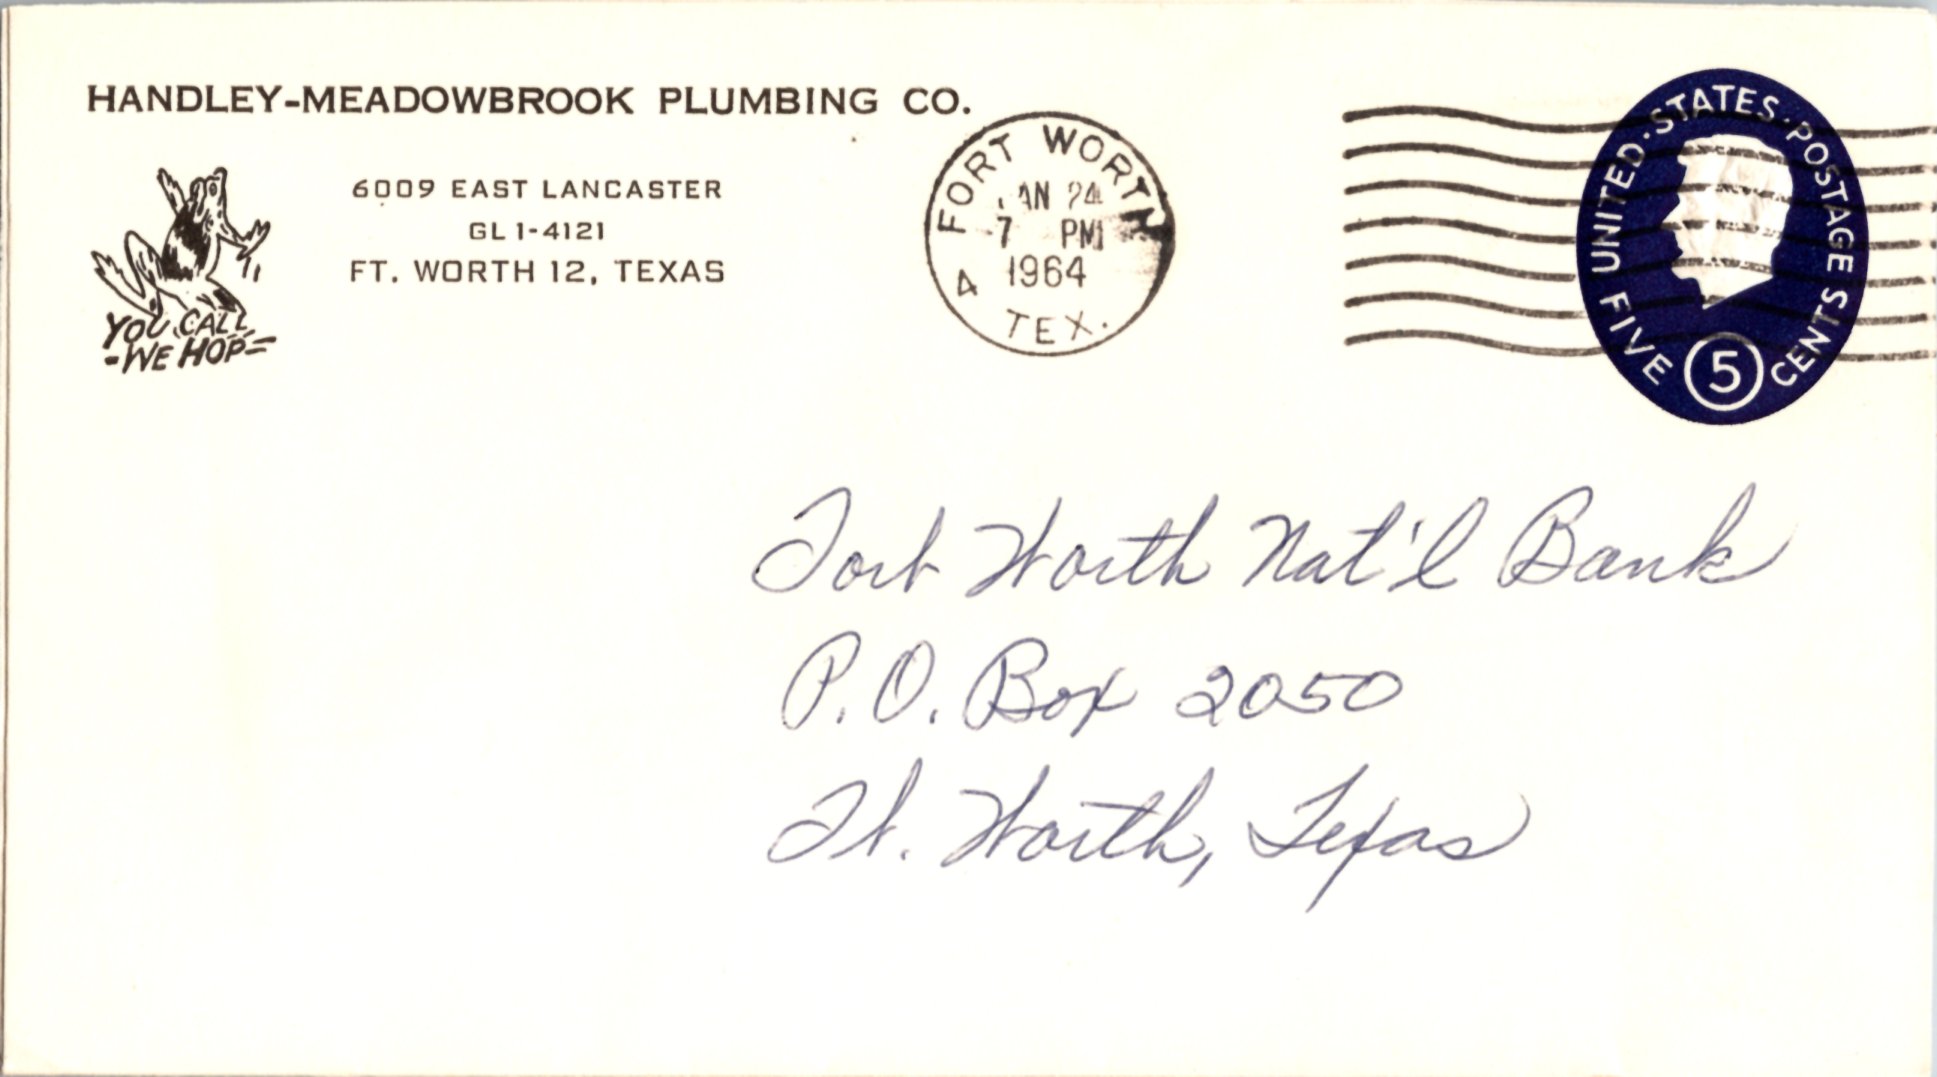 HANDLEY-MEADOWBROOK PLUMBING CO.
6009 EAST LANCASTER
GL 1-4121
FT. WORTH 12, TEXAS
YOU CALL
-WE HOP-
FORT WORTH
JAN 24
7 PM
1964
4
TEX.
UNITED · STATES · POSTAGE
FIVE 5 CENTS
Fort Worth Nat'l Bank
P.O. Box 2050
Ft. Worth, Texas